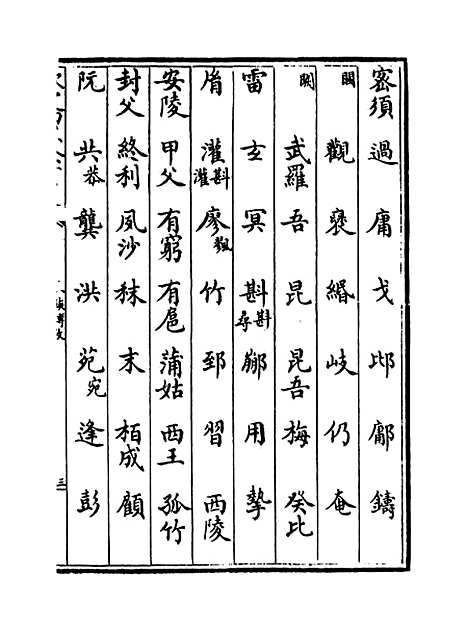 密須 過 庸 戈 邶 鄘 鑄
關 觀 褒 緡 岐 仍 奄
闕 武羅 吾 昆 昆吾 梅 癸比
雷 玄 冥 斟 斟尋 鄘 用 摯
脩 灌 斟灌 廖 飂 竹 郅 習 西陵
安陵 甲父 有窮 有扈 蒲姑 西王 孤竹
封父 終利 夙沙 秣 末 栢成 顧
阮 共 恭 龔 洪 苑 宛 逢 彭
三